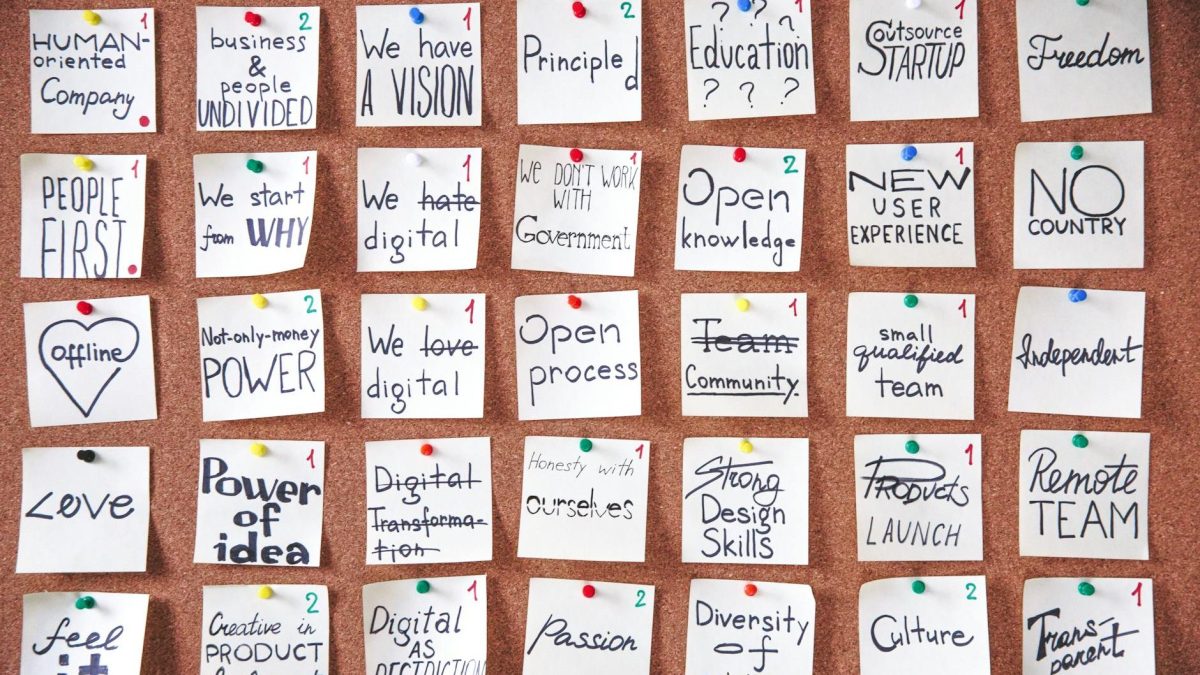 1
HUMAN-
oriented
Company
2
business
&
people
UNDIVIDED
1
We have
A VISION
2
Principled
? ? ?
Education
? ? ?
1
Outsource
STARTUP
Freedom
1
PEOPLE
FIRST
1
We start
from WHY
1
We hate
digital
1
We DON'T WORK
WITH
Government
2
Open
knowledge
1
NEW
USER
EXPERIENCE
NO
COUNTRY
offline
2
Not-only-money
POWER
1
We love
digital
Open
process
1
Team
Community.
1
small
qualified
team
Independent
Love
1
Power
of
idea
Digital
Transforma-
tion
1
Honesty with
ourselves
Strong
Design
Skills
1
PRODUCTS
LAUNCH
Remote
TEAM
feel
it
2
Creative in
PRODUCT
1
Digital
AS
RESTRICTION
2
Passion
Diversity
of
2
Culture
1
Trans-
parent